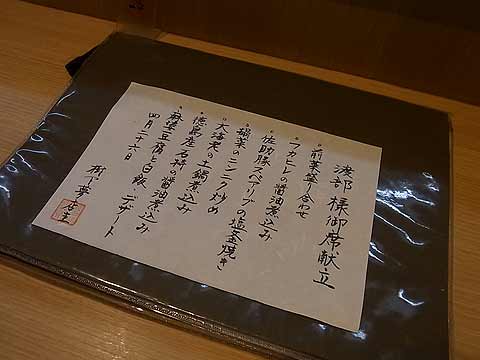 渡部 様御席献立
前菜盛り合わせ
フカヒレの醤油煮込み
佐助豚スペアリブの塩釜焼き
搨菜のニンニク炒め
大海老の土鍋煮込み
徳島産石持の醤油煮込み
麻婆豆腐と白飯 デザート
四月二十六日